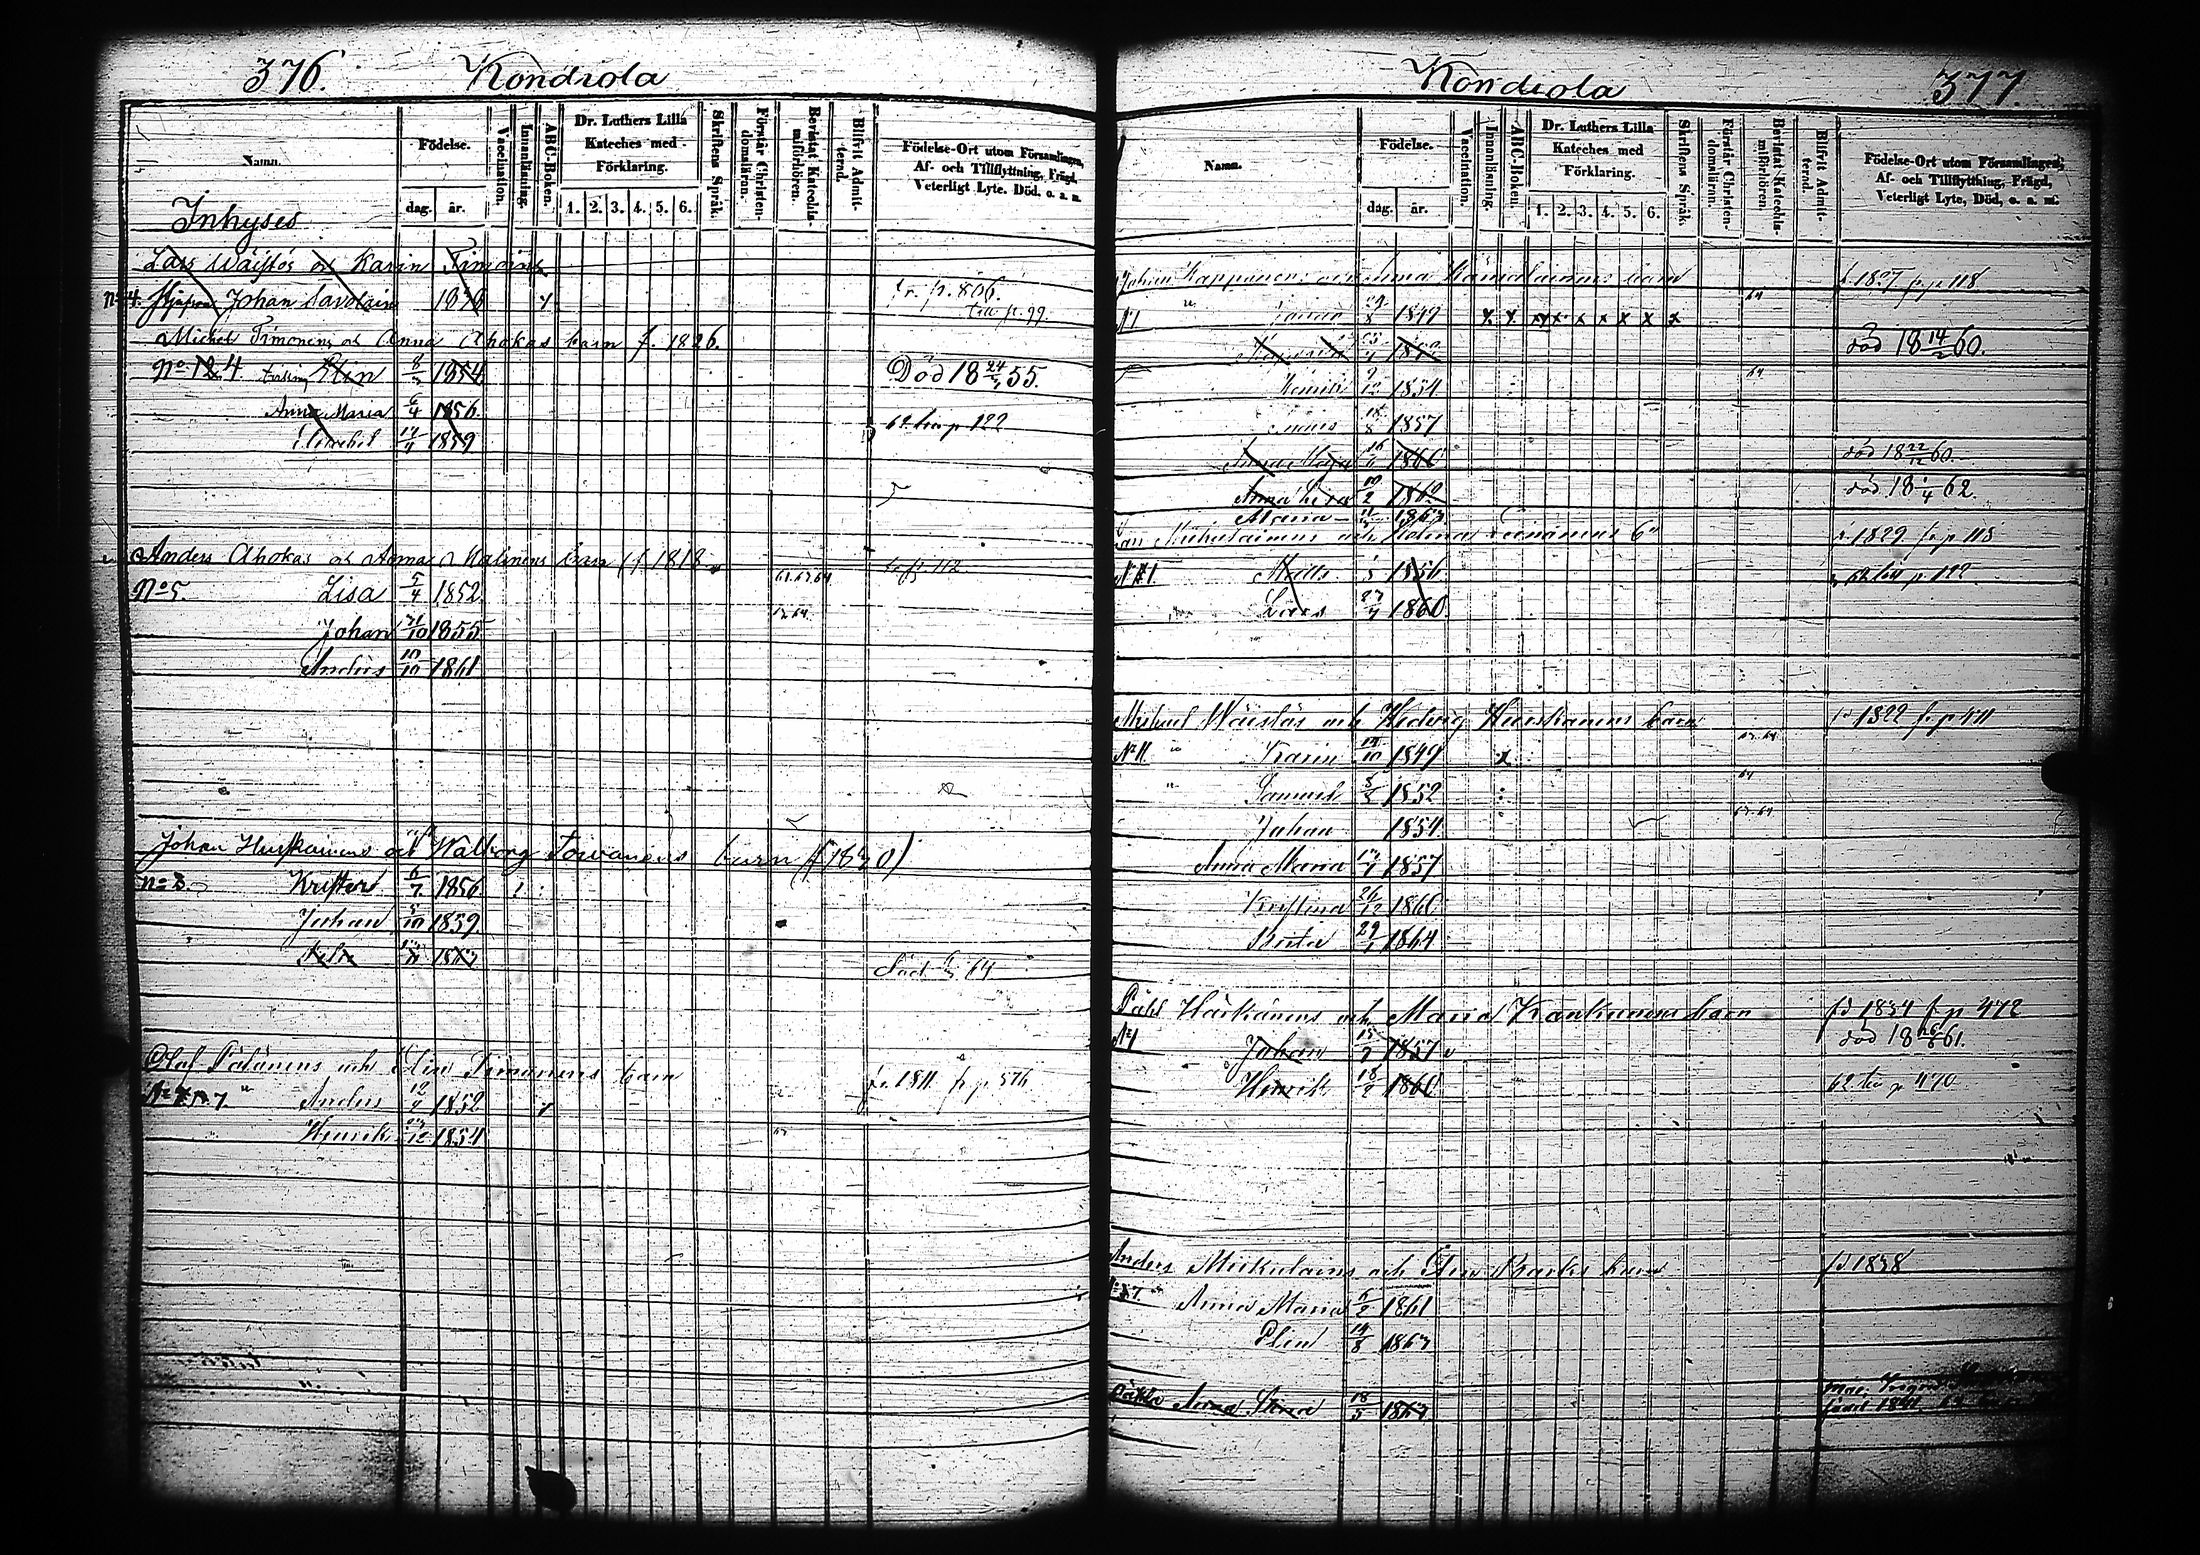 376. Kondiola
Namn. Födelse. Vaccination. Innanläsning. ABC-Boken. Dr. Luthers Lilla Kateches med Förklaring. Skriftens Språk. Förstår Christendomsläran. Bevistat Katechismiförhören. Blifvit Admitterad. Födelse-Ort utom Församlingen, Af- och Tillflyttning, Frägd, Veterligt Lyte. Död, o. a. m.
dag. år. 1. 2. 3. 4. 5. 6.
Inhyses
Lars Wäistös och Karin Timonens
No 4. Johan Savolain 1848 fr. p. 806. till p. 99
Michel Timonens och Anna Ahokas barn f. 1826.
No 4 Elin 8/3 1854 Död 18 24/3 55.
Anna Maria 6/4 1856. 62 till p 122
Elisabet 14/9 1859
Anders Ahokas och Anna Malinens barn f. 1818 fr. p. 112
No 5. Lisa 5/4 1852. 61. 63 64
Johan 31/10 1855 64
Anders 10/10 1861
Johan Huiskainens och Walborg Toivanens barn (f 1830)
No 3. Krister 6/7 1856.
Johan 5/10 1859.
1863 Död 64
Olof Pölänens och Elin Timonens barn fd. 1811 fr p 576
No 7. " Anders 12/9 1852
Henrik 1854
Kondiola 377.
Namn. Födelse. Vaccination. Innanläsning. ABC-Boken. Dr. Luthers Lilla Kateches med Förklaring. Skriftens Språk. Förstår Christendomsläran. Bevistat Katechismiförhören. Blifvit Admitterad. Födelse-Ort utom Församlingen, Af- och Tillflyttning, Frägd, Veterligt Lyte, Död, o. a. m.
dag. år. 1. 2. 3. 4. 5. 6.
Johan Kapponens och Anna barn f. 1827 fr p 118
No 1 " 1849 x x x x x x x x x 64
död 18 14/2 60.
Henrik 9/12 1854 64
18/8 1857
Anna Maja 16/6 1860 död 18 22/12 60.
Anna Lisa 19/2 1862 död 18 1/4 62.
Maria 1863
Lars Mikulainens och Helena f. 1829 fr p 115
No 1. Matts 1/5 1856 62 till p 122
Lars 27/7 1860
Michael Wäistös och Hedvig Huiskanens barn fd 1822 fr p 411
No 11. " Karin 14/10 1849 x 63. 64
" Samuel 5/8 1852 64
Johan 1854 63. 64
Anna Maria 1857
Kristina 26/12 1860
Brita 29/1 1864
Påhl Härkänens och Maria Kankunens barn fd 1834 fr p 472
No 1 Johan 15/7 1857 död 18 26/8 61.
Henrik 18/2 1860 62 till p 470
Anders Mikulainens och Elin barn fd 1838
No 7. " Anna Maria 6/2 1861
Elin 14/8 1863
Anna Stina 18/5 1863